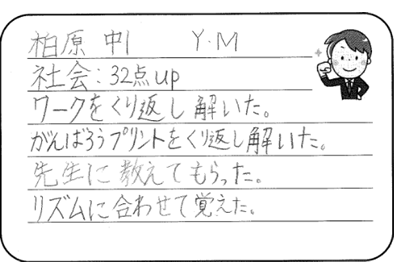 柏原 中1 Y.M
社会：32点up
ワークをくり返し解いた。
がんばろうプリントをくり返し解いた。
先生に教えてもらった。
リズムに合わせて覚えた。